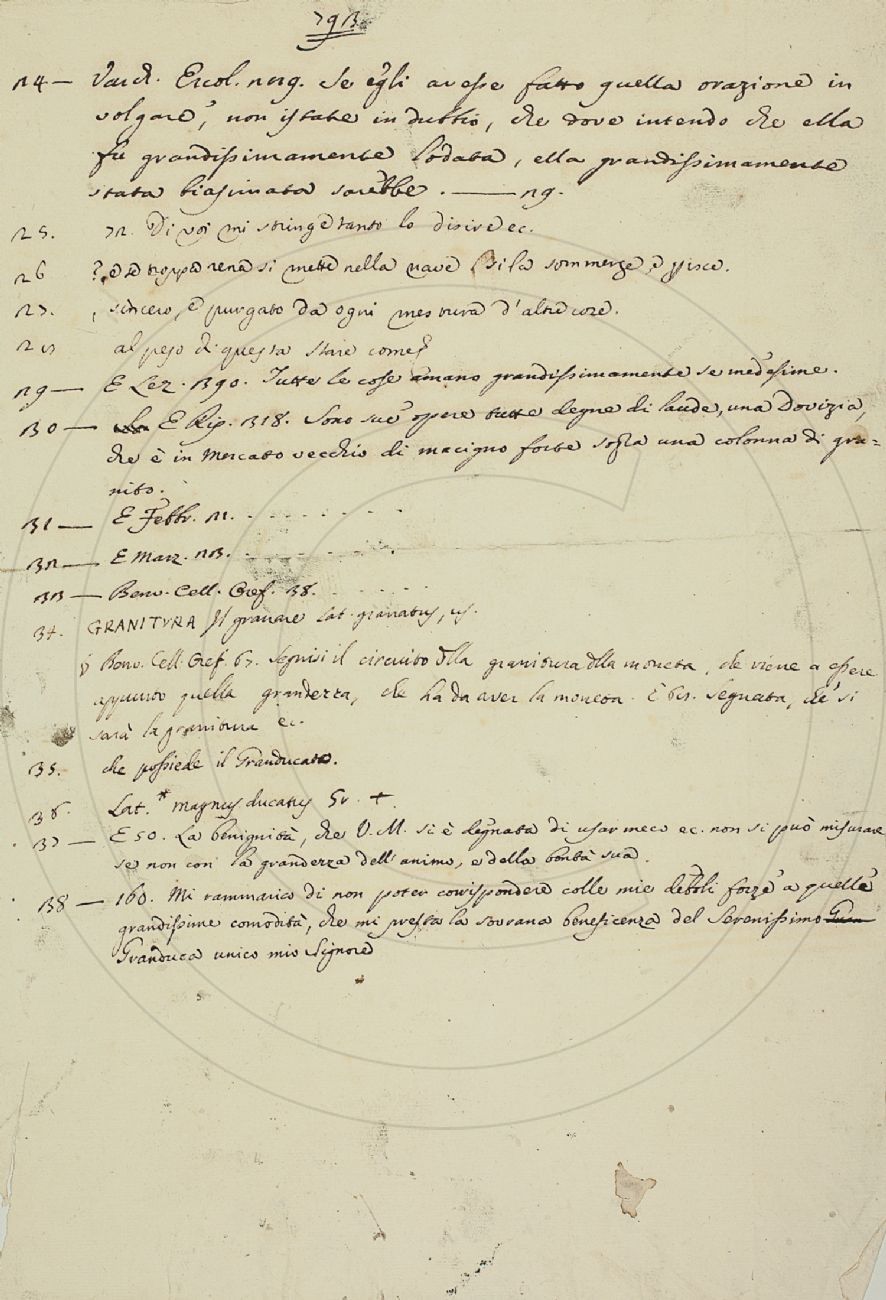 793
24 — Varch. Ercol. 229. Se egli avesse fatto quella orazione in
volgare, non istate in dubbio, che dove intendo che ella
fu grandissimamente lodata, ella grandissimamente
stata biasimata sarebbe. — 29.
25. 72. Di voi mi stringe tanto lo disire ec.
26 troppa rena si mette nella nave si la sommerge, e
27. sincero, e purgato da ogni mestura d'altre cose.
28 al peso di questa stare come
29 — E Lez. 390. Tutte le cose amano grandissimamente se medesime.
30 — E Rip. 318. Sono sue opere tutte degne di laude, una Dovizia,
che è in Mercato vecchio di macigno forte sopra una colonna di gra=
nito.
31 — E Febbr. 21. . . . . . . .
32 — E Marz. 23. . . . . . . .
33 — Benv. Cell. Oref. 38. . . . . .
34. GRANITURA Il granare Lat. granatus, us.
§ Benv. Cell. Oref. 67. Segnisi il circuito della granitura della moneta, che viene a essere
appunto quella grandezza, che ha da aver la moneta. E 68. Segnata, che si
sarà la granitura ec.
35. che possiede il Granducato.
36. Lat. * magnus ducatus Gr. +
37 — E 50. La benignità, che V. M. si è degnata di usar meco ec. non si può misurare
se non con la grandezza dell'animo, e della bontà sua.
38 — 160. Mi rammarico di non poter corrispondere colle mie deboli forze a quelle
grandissime comodità, che mi presta la sovrana beneficenza del Serenissimo
Granduca unico mio Signore